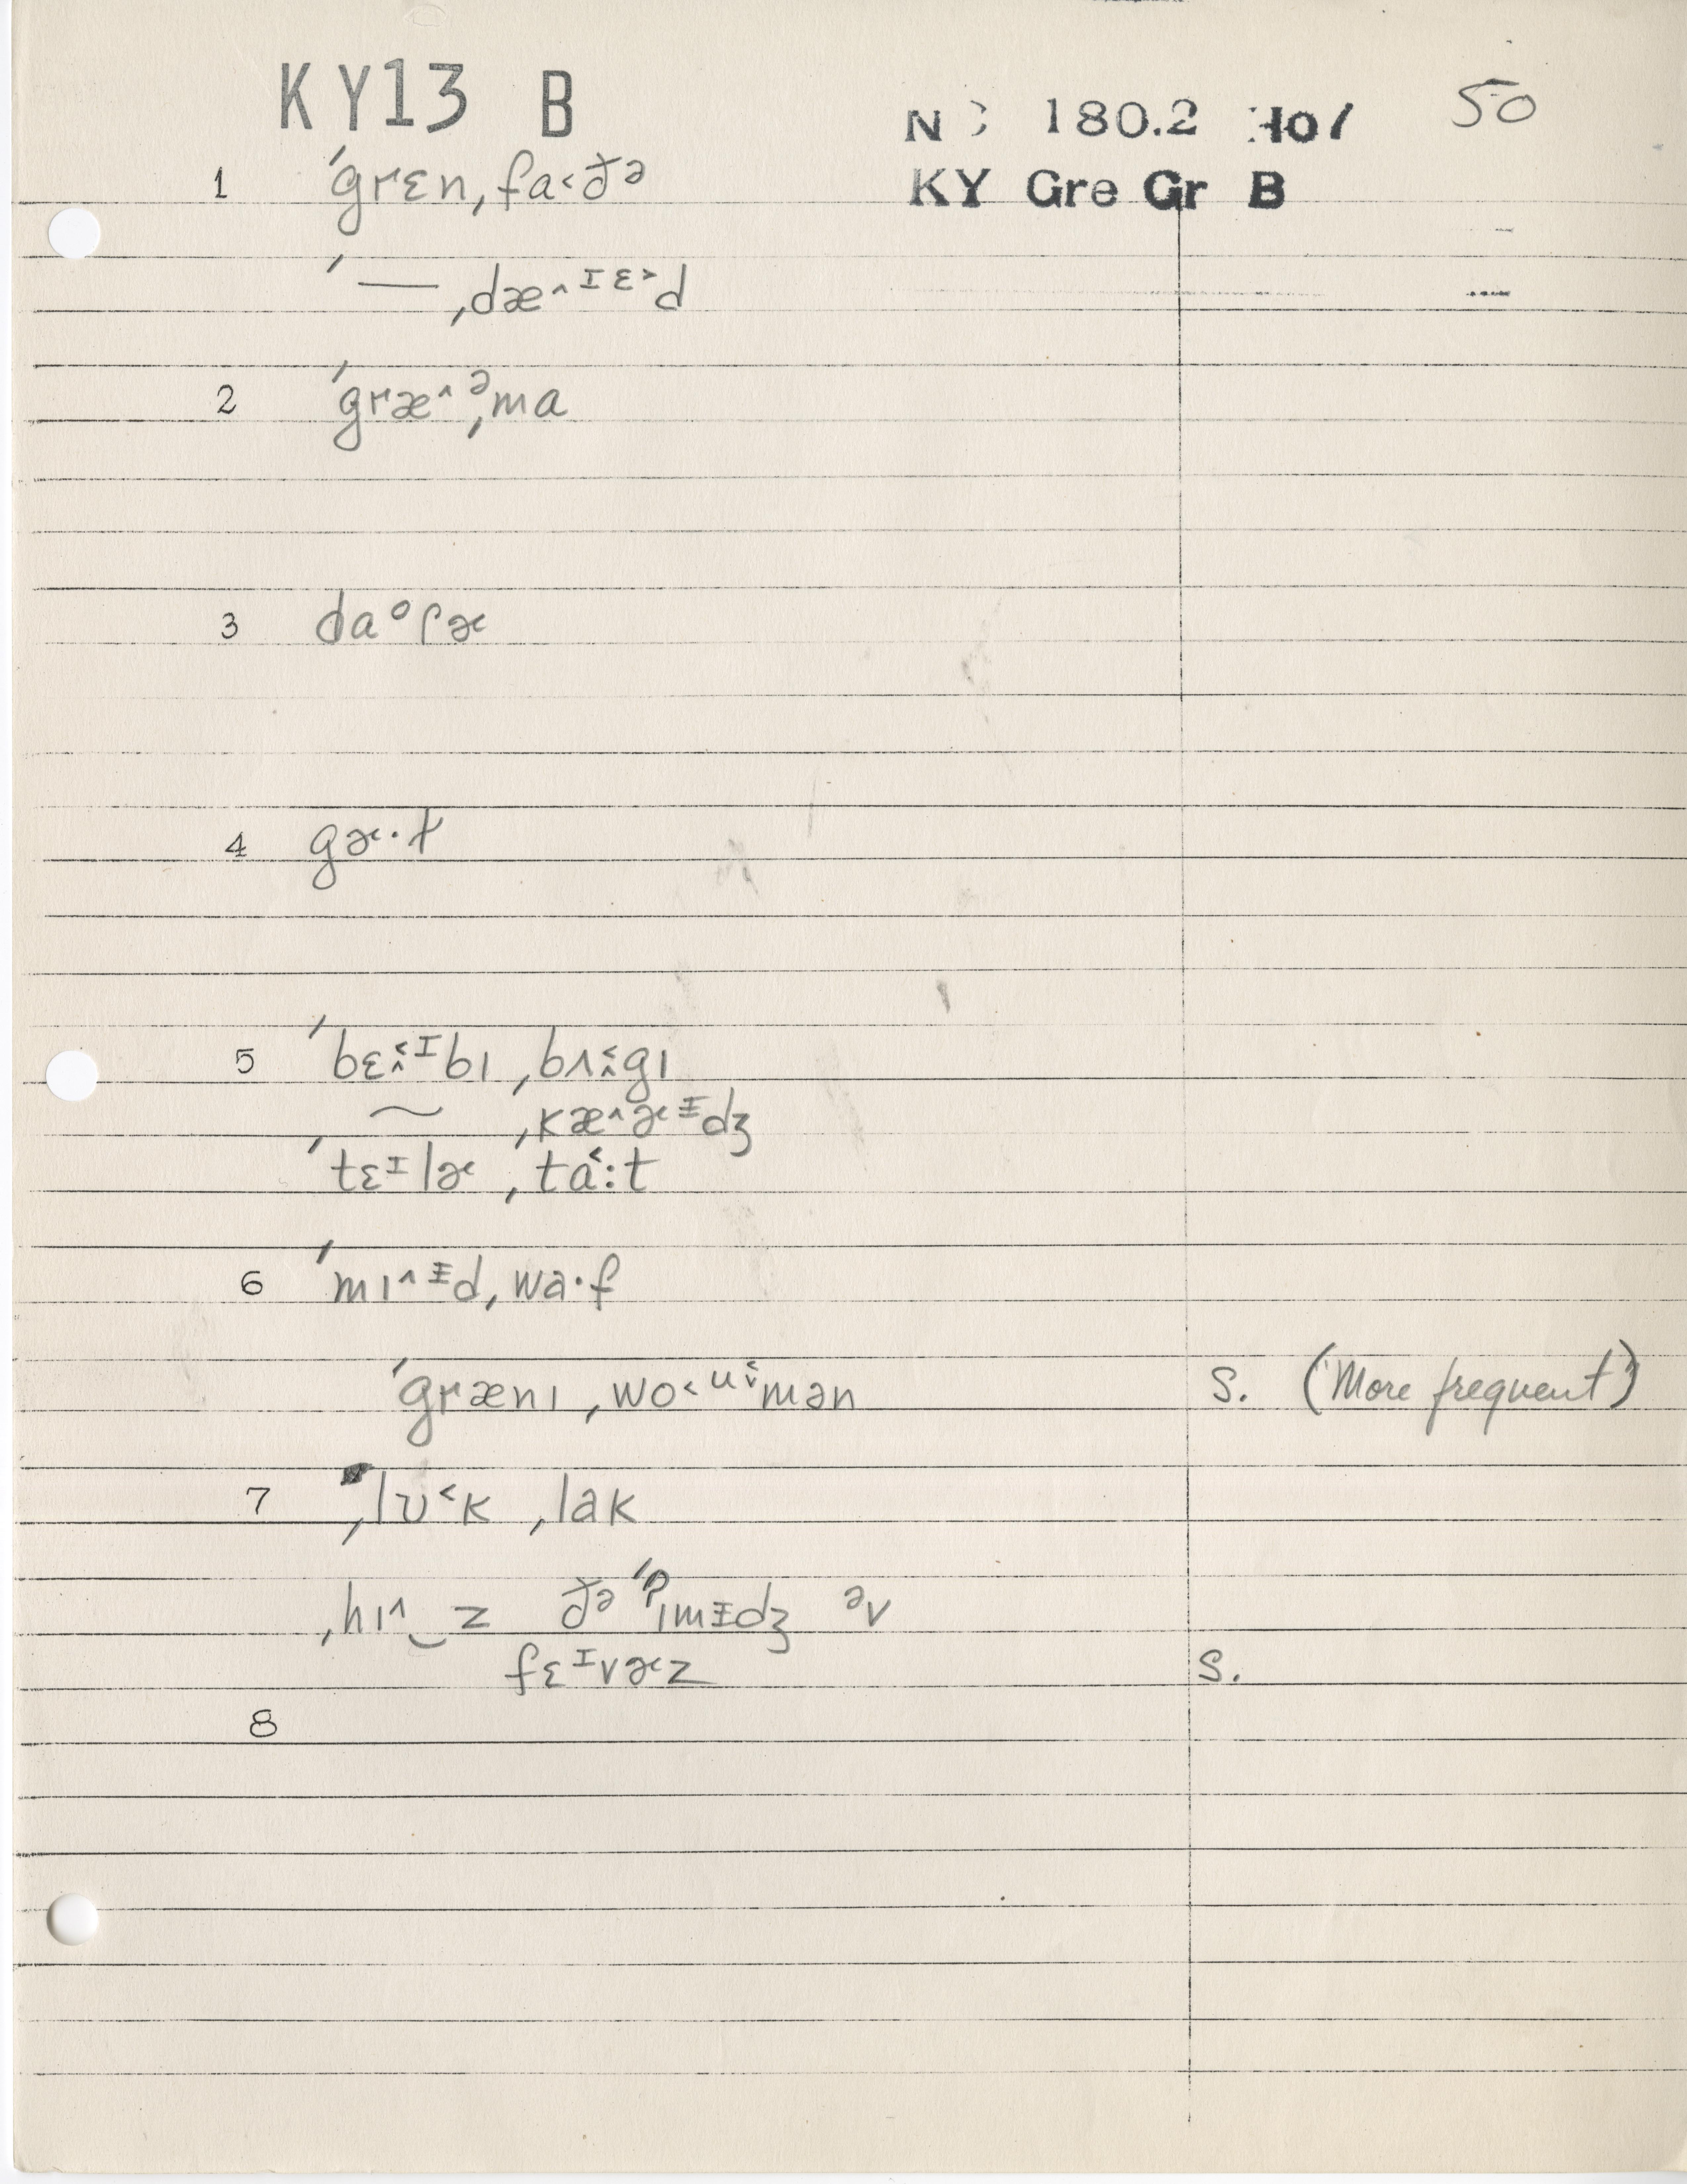 KY13 B
N C 180.2 Ho/ 50
KY Gre Gr B
1 ˈgrɛn ˌfa˂ðə
ˈ— ˌdæ˄ᶦᵋ˃d
2 ˈgræ˄ᵊˌma
3 daᵒɾɚ
4 gɚ·ɫ
5 ˈbɛ˂˄ᶦbɪ ˌbʌ˂˄gɪ
~ ˌkæ˄ɚᵻdʒ
ˈtɛᶦlɚ ˌtɑ˂:t
6 ˈmɪ˄ᵻd ˌwa·f
ˈgrænɪ ˌwo˂ᵘ˂˅mən s. (More frequent)
7 ˌlʊ˂k ˌlak
ˌhɪ˄‿z ðə ˈʔɪmᵻdʒ ᵊv
fɛᶦvɚz s.
8